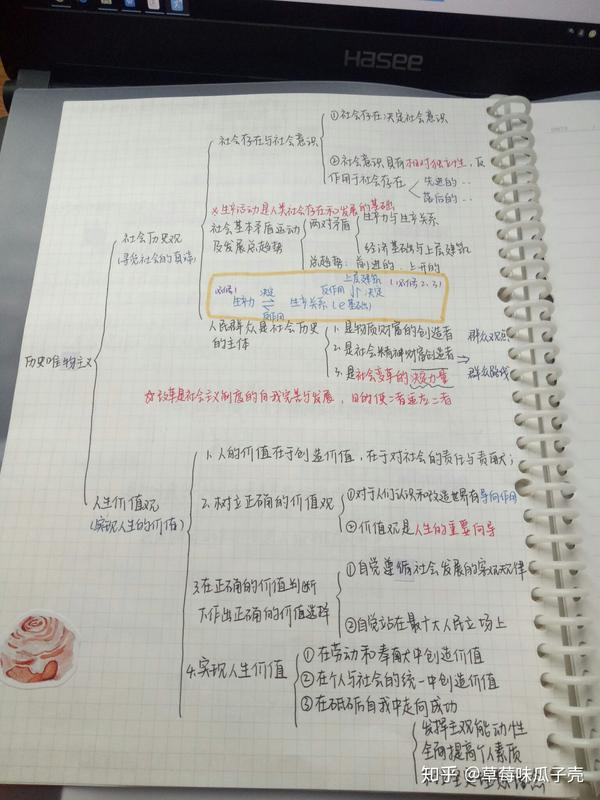 Hasee
①社会存在决定社会意识
社会存在与社会意识
②社会意识具有相对独立性，反
作用于社会存在
先进的..
落后的..
※生产活动是人类社会存在和发展的基础
社会历史观
(寻觅社会的真谛)
社会基本矛盾运动
及发展总趋势
两对矛盾
生产力与生产关系
经济基础与上层建筑
总趋势：前进的、上升的
上层建筑
决定
反作用
决定
生产力 ⇌ 生产关系
反作用
历史唯物主义
人民群众是社会历史
的主体
1.是物质财富的创造者
2.是社会精神财富创造者
3.是社会变革的决定力量
群众观点
⇒
群众路线
☆改革是社会主义制度的自我完善与发展，目的使二者适应二者
人生价值观
(实现人生的价值)
1.人的价值在于创造价值，在于对社会的责任与贡献；
2.树立正确的价值观
①对于人们认识和改造世界有导向作用
②价值观是人生的重要向导
3.在正确的价值判断
下作出正确的价值选择
①自觉遵循社会发展的客观规律
②自觉站在最广大人民立场上
4.实现人生价值
①在劳动和奉献中创造价值
②在个人与社会的统一中创造价值
③在砥砺自我中走向成功
发挥主观能动性
全面提高个人素质
知乎 @草莓味瓜子壳